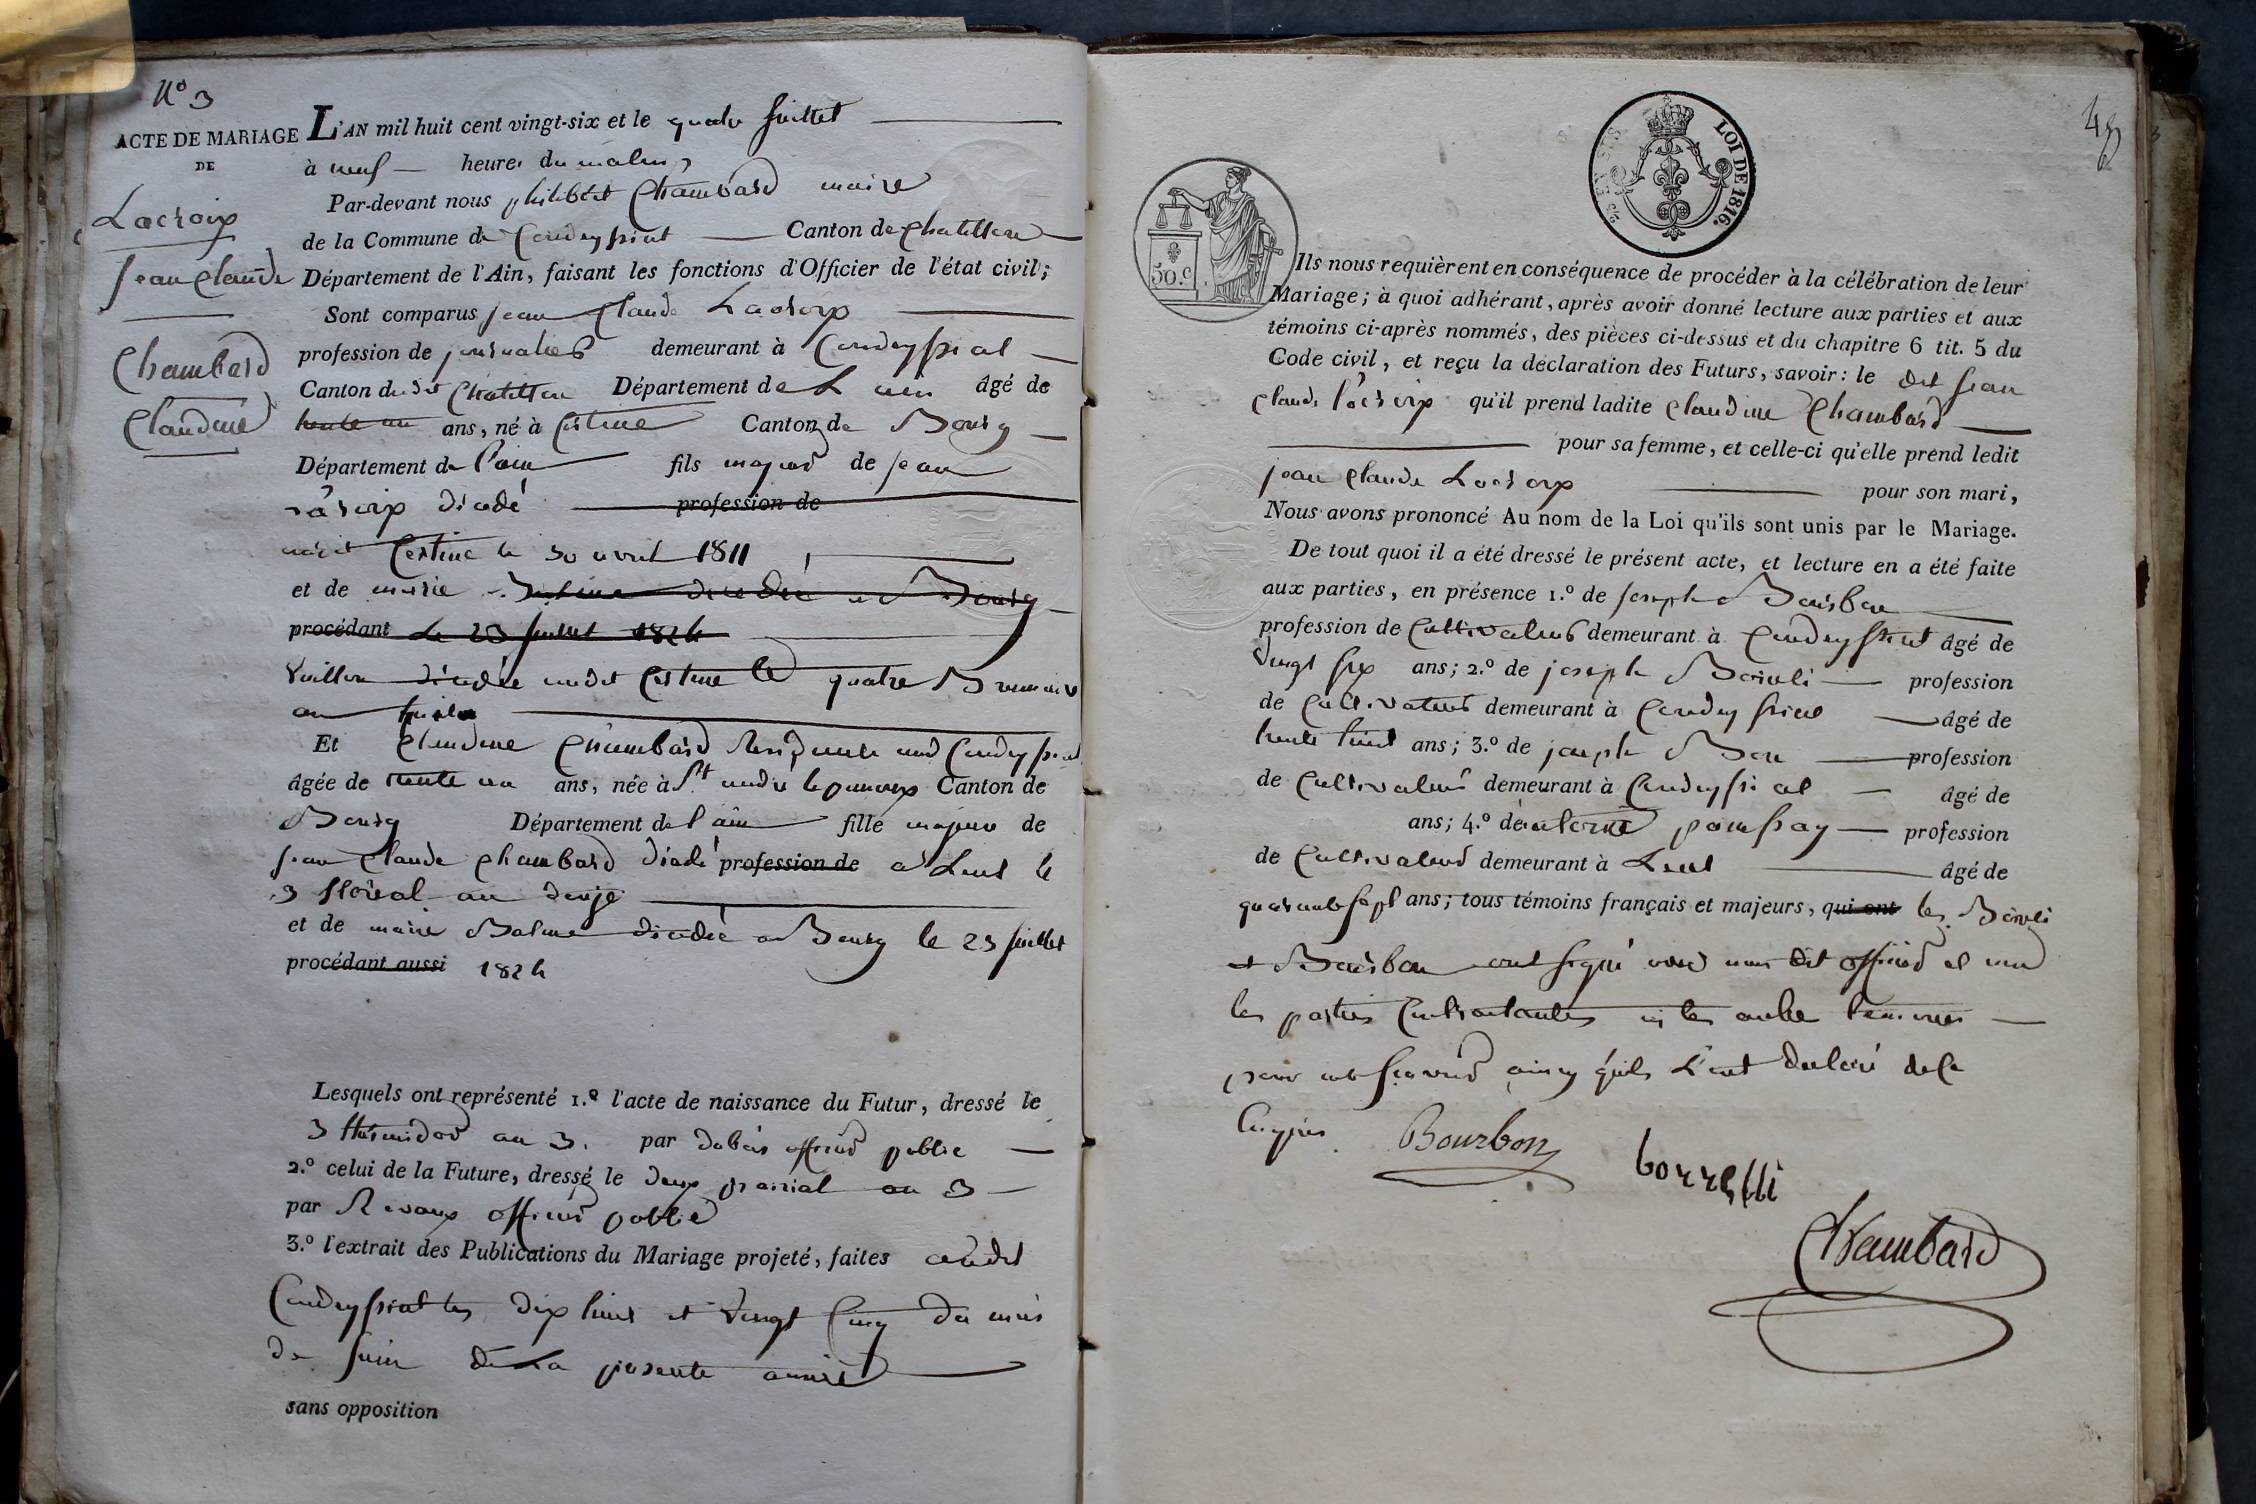 N° 3
ACTE DE MARIAGE
DE
Lacroix
Jean Claude
Chambard
Claudine
L'AN mil huit cent vingt-six et le quatre Juillet
à neuf heures du matin,
Par-devant nous philibert Chambard maire
de la Commune de Condeyssiat Canton de Chatillon
Département de l'Ain, faisant les fonctions d'Officier de l'état civil;
Sont comparus jean Claude Lacroix
profession de journalier demeurant à Condeyssiat
Canton du dit Chatillon Département de L'ain âgé de
trente un ans, né à Certine Canton de Bourg
Département de l'ain fils majeur de jean
Lacroix décédé profession de
audit Certine le 30 avril 1811
et de marie Balme décédée a Bourg
procédant Le 23 juillet 1824
Vuillon décédée audit Certine le quatre Brumaire
an
Et Claudine Chambard Residente aud Condeyssiat
âgée de trente un ans, née à St andré le panoux Canton de
Bourg Département de l'ain fille majeure de
jean Claude Chambard décédé profession de a Lent le
3 floréal an douze
et de marie Balme décédée a Bourg le 23 juillet
procédant aussi 1824
Lesquels ont représenté 1.° l'acte de naissance du Futur, dressé le
3 thermidor an 3. par dubois officier public
2.° celui de la Future, dressé le deux prairial an 3
par Revoux officier public
3.° l'extrait des Publications du Mariage projeté, faites audit
Condeyssiat les dix huit et vingt Cinq du mois
de juin de La presente année
sans opposition
48
LOI DE 1816.
50.c
Ils nous requièrent en conséquence de procéder à la célébration de leur
Mariage; à quoi adhérant, après avoir donné lecture aux parties et aux
témoins ci-après nommés, des pièces ci-dessus et du chapitre 6 tit. 5 du
Code civil, et reçu la déclaration des Futurs, savoir: le dit jean
Claude Lacroix qu'il prend ladite Claudine Chambard
pour sa femme, et celle-ci qu'elle prend ledit
jean Claude Lacroix pour son mari,
Nous avons prononcé Au nom de la Loi qu'ils sont unis par le Mariage.
De tout quoi il a été dressé le présent acte, et lecture en a été faite
aux parties, en présence 1.° de joseph Bourbon
profession de Cultivateur demeurant à Condeyssiat âgé de
vingt six ans; 2.° de joseph Borrelli profession
de Cultivateur demeurant à Condeyssiat âgé de
trente huit ans; 3.° de joseph Bon profession
de Cultivateur demeurant à Condeyssiat âgé de
ans; 4.° de profession
de Cultivateur demeurant à Lent âgé de
quarante sept ans; tous témoins français et majeurs, qui ont les Borrelli
et Bourbon ont signé avec nous dit officier et non
les parties Contractantes ni les autre temoins
pour ne sçavoir ainsy qu'ils L'ont declaré de ce
Enquis. Bourbon
borrelli
Chambard